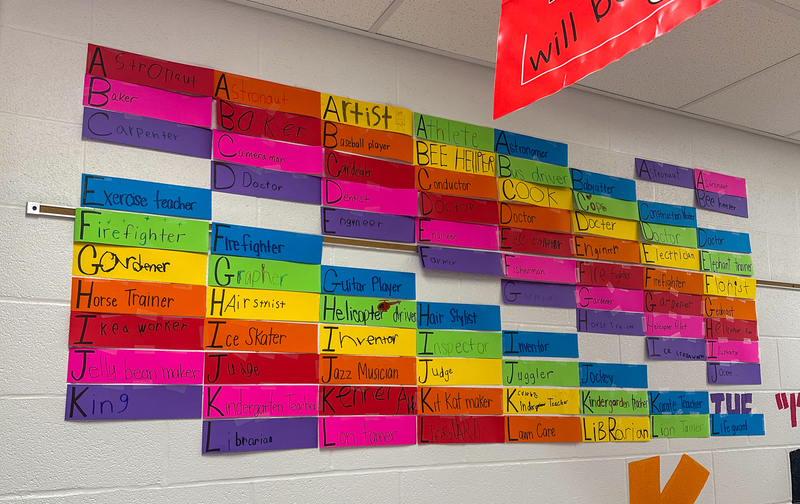 will be
Astronaut
Baker
Carpenter
Exercise teacher
Firefighter
GarDener
Horse Trainer
Ikea worker
Jelly bean maker
King
Astronaut
BaKer
Camera man
Doctor
Firefighter
Grapher
HAirstnist
Ice Skater
Judge
Kindergarten Teacher
Librarian
Artist
Baseball player
Dentist
Engineer
Guitar Player
Helicopter driver
Inventor
Jazz Musician
Lion tamer
Athlete
BEE HElPER
Conductor
Doctor
Farmer
Hair Stylist
Inspector
Judge
Kit Kat maker
Astronomer
Bus driver
COOK
Doctor
Fisherman
Inventor
Juggler
Lawn Care
Babysitter
Docter
Engineer
Fire fighter
Gardener
Jockey
LiBRarian
Astronaut
Doctor
Electrician
Firefighter
Helicopter Pilot
Karate Teacher
Lion Tamer
Astronaut
Bee keeper
Doctor
Elephant Trainer
Florist
Lifeguard
THE
K